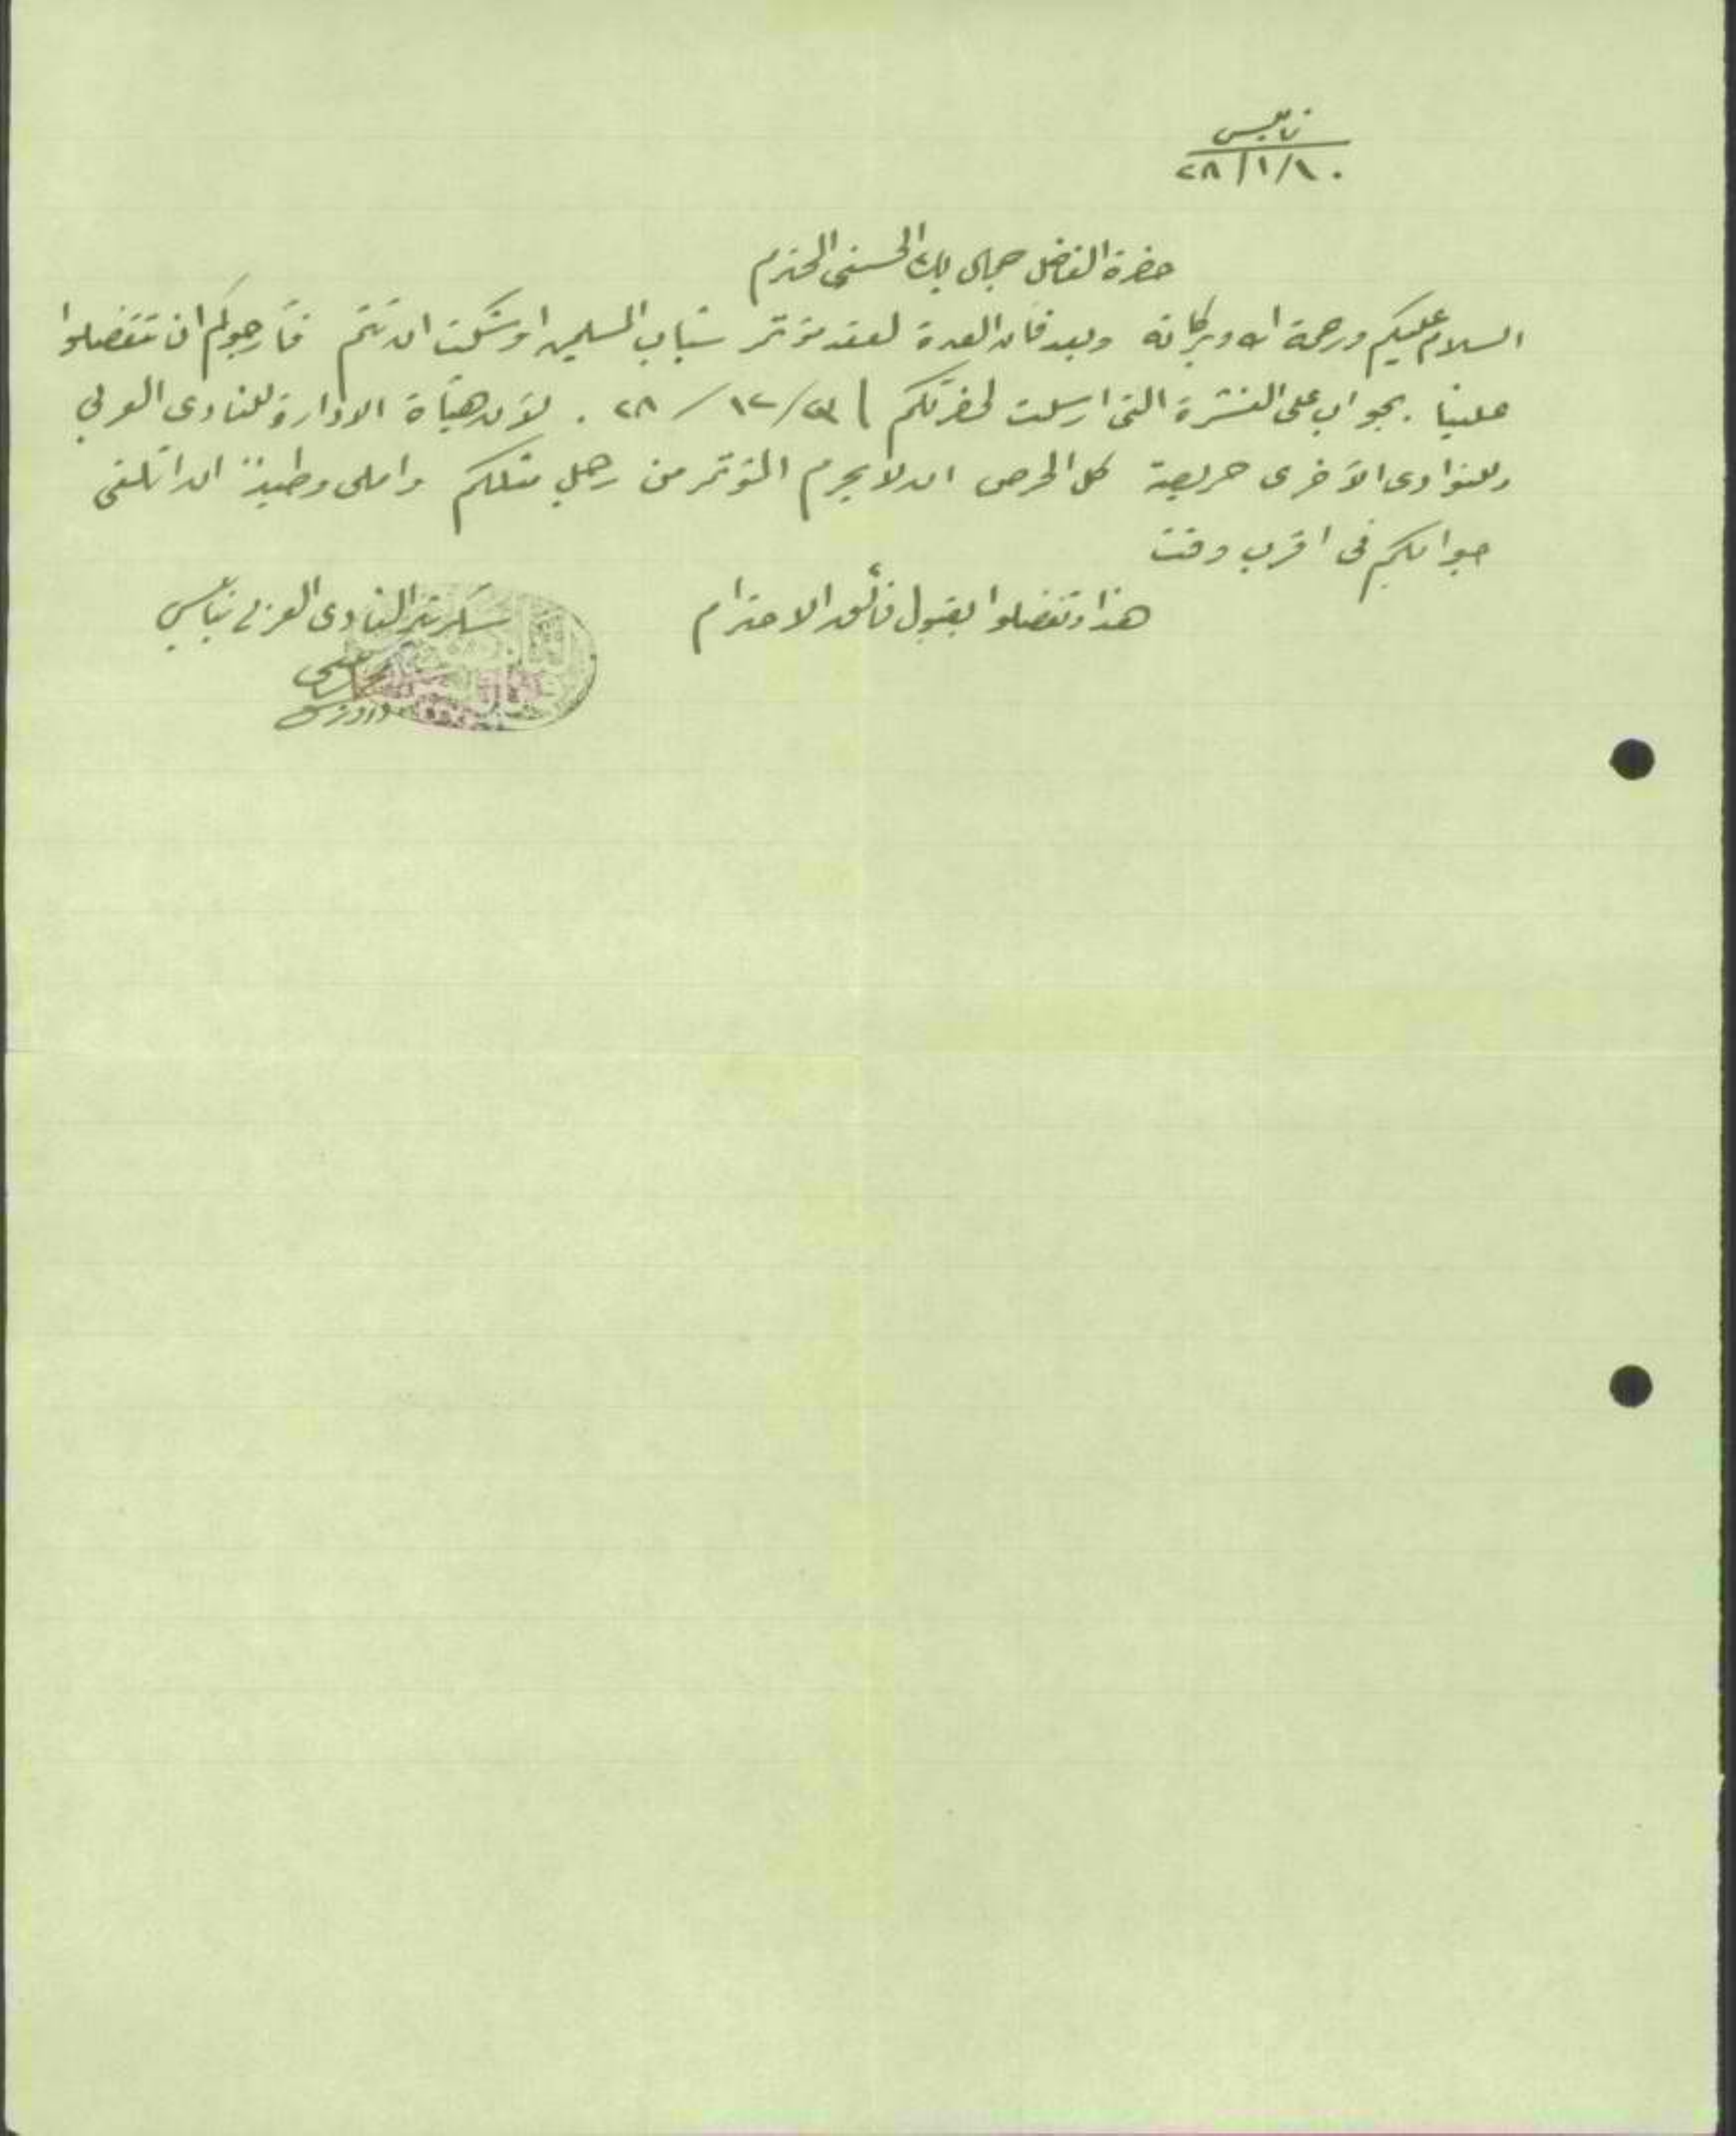 نابلس
٢٨/١/١٠
حضرة الفاضل جمال بك الحسيني المحترم
السلام عليكم ورحمة الله وبركاته وبعد فان العدة لعقد مؤتمر شباب المسلمين اوشكت ان تتم فأرجوكم ان تتفضلوا
علينا بجواب على النشرة التي ارسلت لحضرتكم ١٢/ ٢٨ . لأن هيأة الادارة للنادي العربي
وللنوادي الأخرى حريصة كل الحرص ان لا يحرم المؤتمر من رجل مثلكم واملي وطيد ان اتلقى
جوابكم في اقرب وقت
هذا وتفضلوا بقبول فائق الاحترام
سكرتير النادي العربي بنابلس